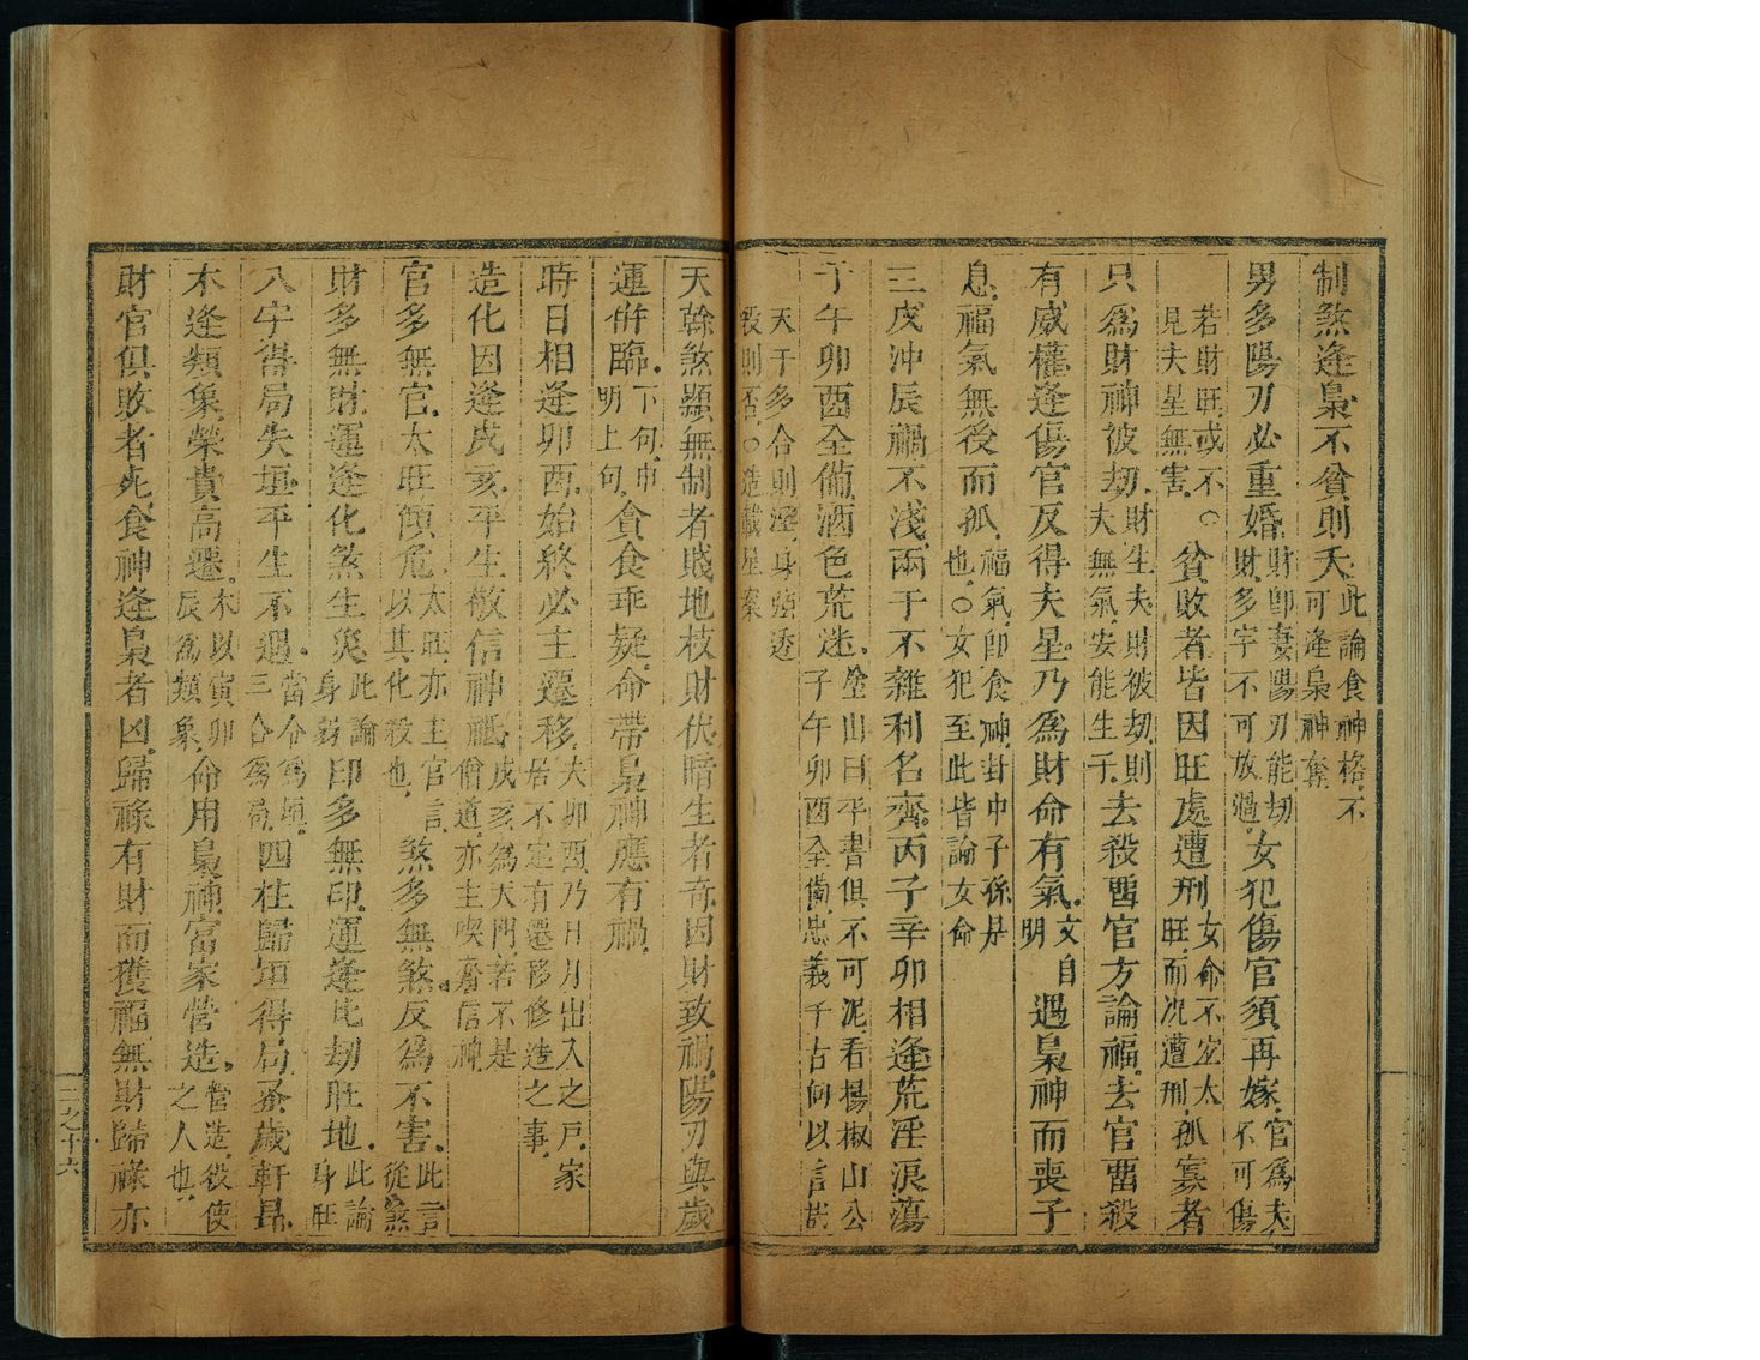 制煞逢梟不貧則夭此論食神格不可逢梟神奪
男多陽刃必重婚財即妻陽刃能刧財多字不可放過女犯傷官須再嫁官爲夫不可傷
若財旺或不見夫星無害○貧敗者皆因旺處遭刑女命不宜太旺而况遭刑孤寡者
只爲財神被刧財生夫財被刧則夫無氣安能生子去殺畱官方論福去官畱殺
有威權逢傷官反得夫星乃爲財命有氣文自明遇梟神而喪子
息福氣無後而孤福氣卽食神卦中子孫是也○女犯至此皆論女命
三戌沖辰禍不淺兩干不雜利名齊丙子辛卯相逢荒淫浪蕩
子午卯酉全備酒色荒迷壺山曰平書俱不可泥看楊椒山公子午卯酉全備忠義千古何以言哉
天干多合則淫身强透殺則否○造載星案
天幹煞顯無制者賤地枝財伏暗生者奇因財致禍陽刃與歲
運併臨下句申明上句貪食乖疑命帶梟神應有禍
時日相逢卯酉始終必主遷移大卯酉乃日月出入之戸家居不定有遷移修造之事
造化因逢戌亥平生敬信神祗戌亥爲天門若不是僧道亦主喫齋信神
官多無官太旺傾危太旺亦主官言以其化殺也煞多無煞反爲不害此言從煞
財多無財運逢化煞生災此論身弱印多無印運逢比刧旺地此論身旺
八字得局失垣平生不遇當令爲垣三合爲局四柱歸垣得局蚤歲軒昂
木逢類象榮貴高遷木以寅卯辰爲類象命用梟神富家營造營造役使之人也
財官俱敗者死食神逢梟者凶歸祿有財而獲福無財歸祿亦
三之十六